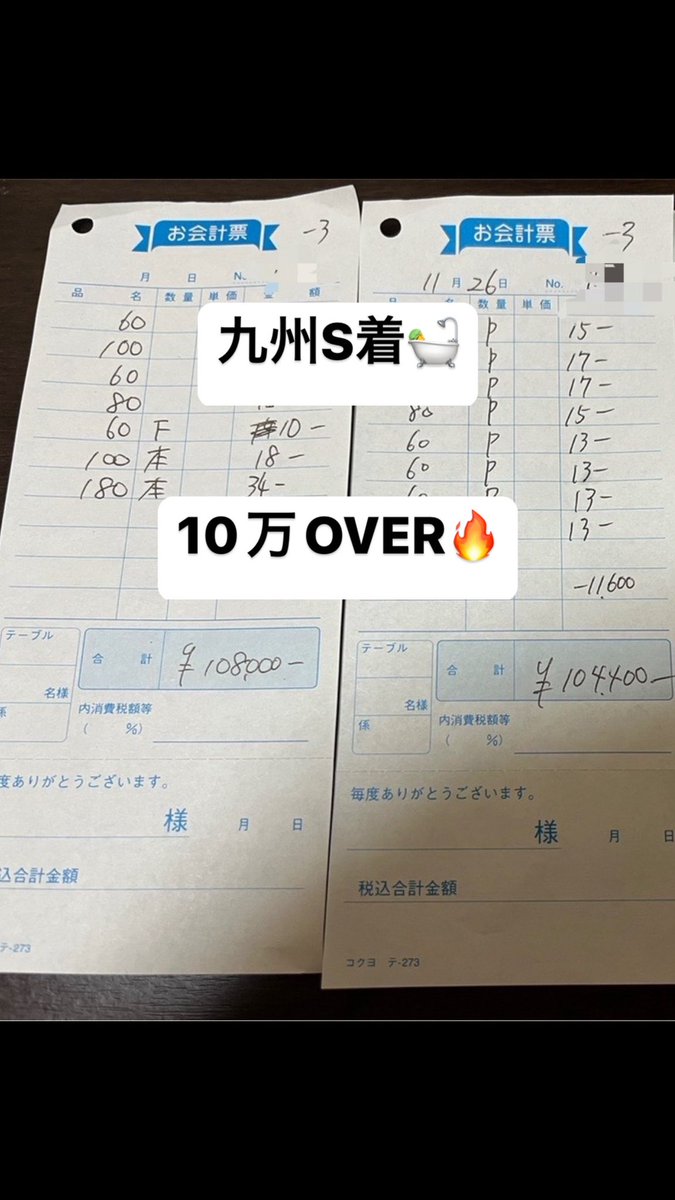 お会計票
-3
月 日 No.
品 名 数量 単価 金 額
60
100
60
80
60 F 10-
100 本 18-
180 本 34-
テーブル
名様
係
合 計 ¥108,000-
内消費税額等
( %)
毎度ありがとうございます。
様 月 日
税込合計金額
テ-273
お会計票
-3
11月26日 No.
名 数量 単価 額
P 15-
P 17-
P 17-
80 P 15-
60 P 13-
60 P 13-
13-
13-
-11,600
テーブル
名様
係
合 計 ¥104,400-
内消費税額等
( %)
毎度ありがとうございます。
様 月 日
税込合計金額
コクヨ テ-273
九州S着🛀
10万OVER🔥